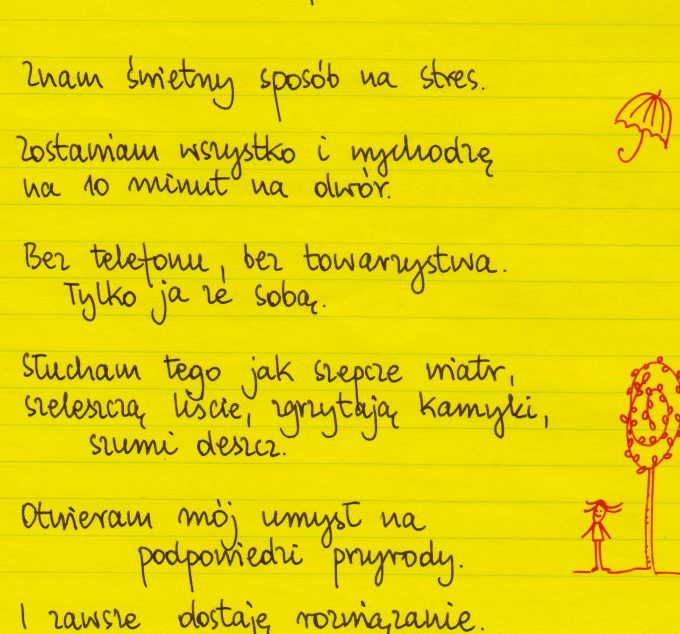 Znam świetny sposób na stres.
Zostawiam wszystko i wychodzę
na 10 minut na dwór.
Bez telefonu, bez towarzystwa.
Tylko ja ze sobą.
Słucham tego jak szepcze wiatr,
szeleszczą liście, zgrzytają kamyki,
szumi deszcz.
Otwieram mój umysł na
podpowiedzi przyrody.
I zawsze dostaję rozwiązanie.